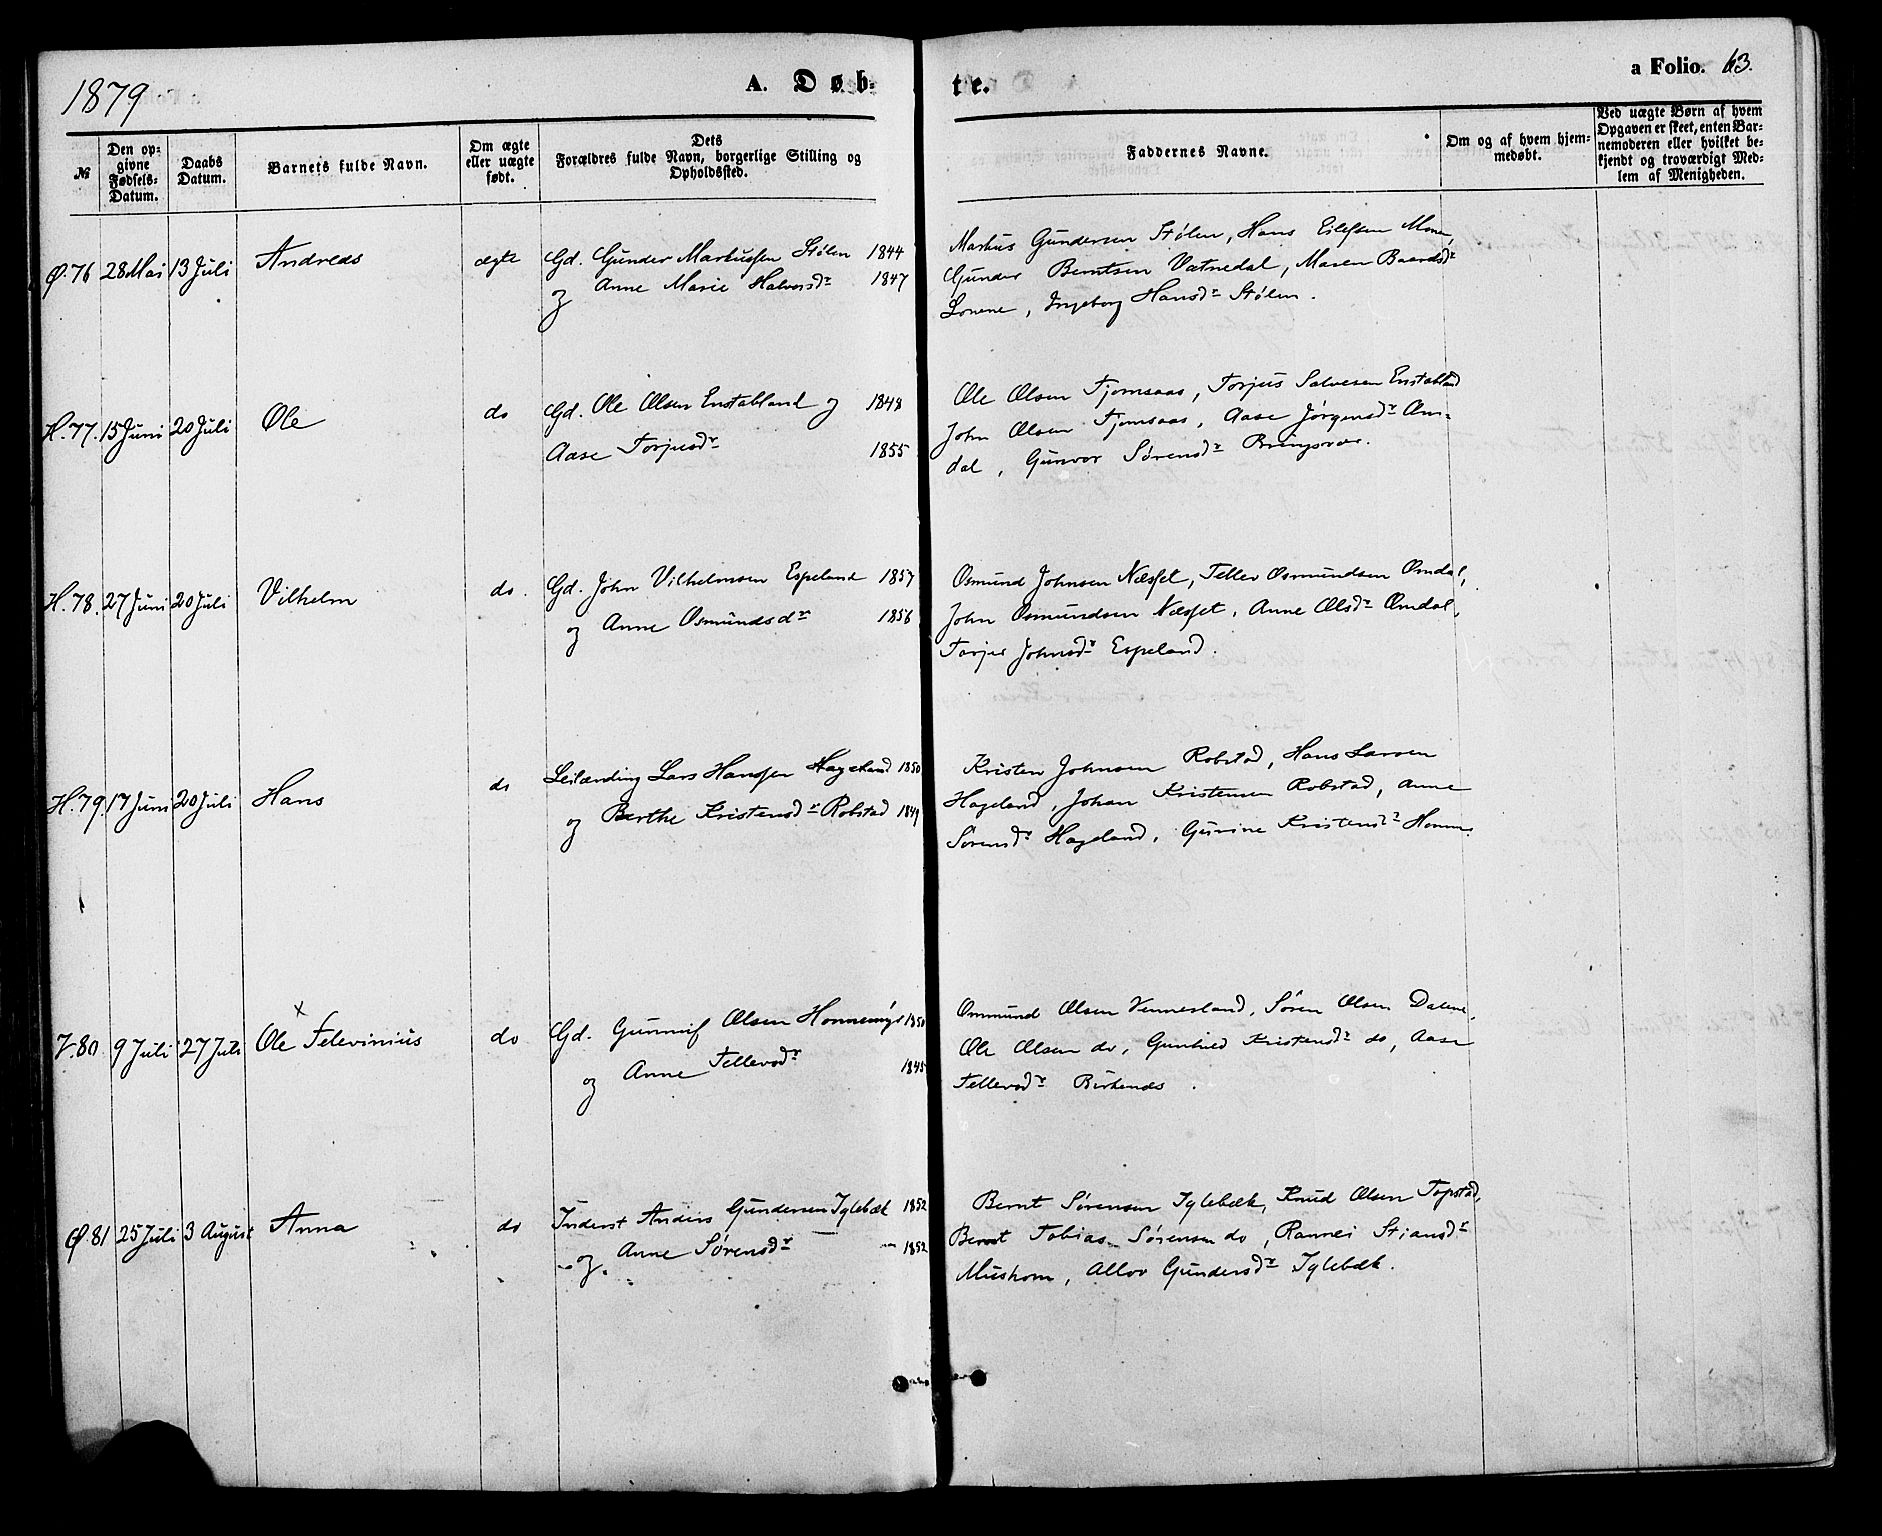 1879
A. Døb-
te.
a Folio. 63.
№
Den op-
givne
Fødsels-
Datum.
Daabs
Datum.
Barnets fulde Navn.
Om ægte
eller uægte
født.
Dets
Forældres fulde Navn, borgerlige Stilling og
Opholdssted.
Faddernes Navne.
Om og af hvem hjem-
medøbt.
Ved uægte Børn af hvem
Opgaven er skeet, enten Bar-
nemoderen eller hvilket be-
kjendt og troværdigt Med-
lem af Menigheden.
Ø. 76 28 Mai 13 Juli Andreas ægte Gd. Gunder Markussen Stølen 1844
og Anne Marie Halvorsdr 1847
Markus Gundersen Stølen, Hans Eilefsen Moen,
Gunder Berntsen Vatnedal, Maren Baardsdr
Lonene, Ingeborg Hansdr Stølen.
H. 77. 15 Juni 20 Juli Ole do Gd. Ole Olsen Enstabland og 1848
Aase Torjusdr 1855
Ole Olsen Fjomsaas, Torjus Salvesen Enstabland
John Olsen Fjomsaas, Aase Jørgensdr Om-
dal, Gunvor Sørensdr Bringsvor.
H. 78. 27 Juni 20 Juli Vilhelm do. Gd. John Vilhelmsen Espeland 1857
og Anne Osmundsdr 1856
Osmund Johnsen Næsset, Tellev Osmundsen Omdal,
John Osmundsen Næsset, Anne Olsdr Omdal,
Torjer Johnsdr Espeland.
H. 79. 17 Juni 20 Juli Hans do Leilænding Lars Hanssen Hageland 1850
og Berthe Kristensdr Robstad 1849
Kristen Johnsen Robstad, Hans Larsen
Hageland, Johan Kristensen Robstad, Anne
Sørensdr Hageland, Gurine Kristensdr Homme
x
V. 80. 9 Juli 27 Juli Ole Televinius do Gd. Gunnuf Olsen Honnemyr 1850
og Anne Tellevsdr 1845
Ommund Olsen Vennesland, Søren Olsen Dalene,
Ole Olsen do, Gunhild Kristensdr do, Aase
Tellevsdr Birkenes.
Ø. 81 25 Juli 3 August Anna do Inderst Anders Gundersen Iglebæk 1852
og Anne Sørensdr 1852
Bernt Sørensen Iglebæk, Knud Olsen Topstad,
Bernt Tobias Sørensen do, Rannei Stiansdr
Mushom, Allov Gundersdr Iglebæk.